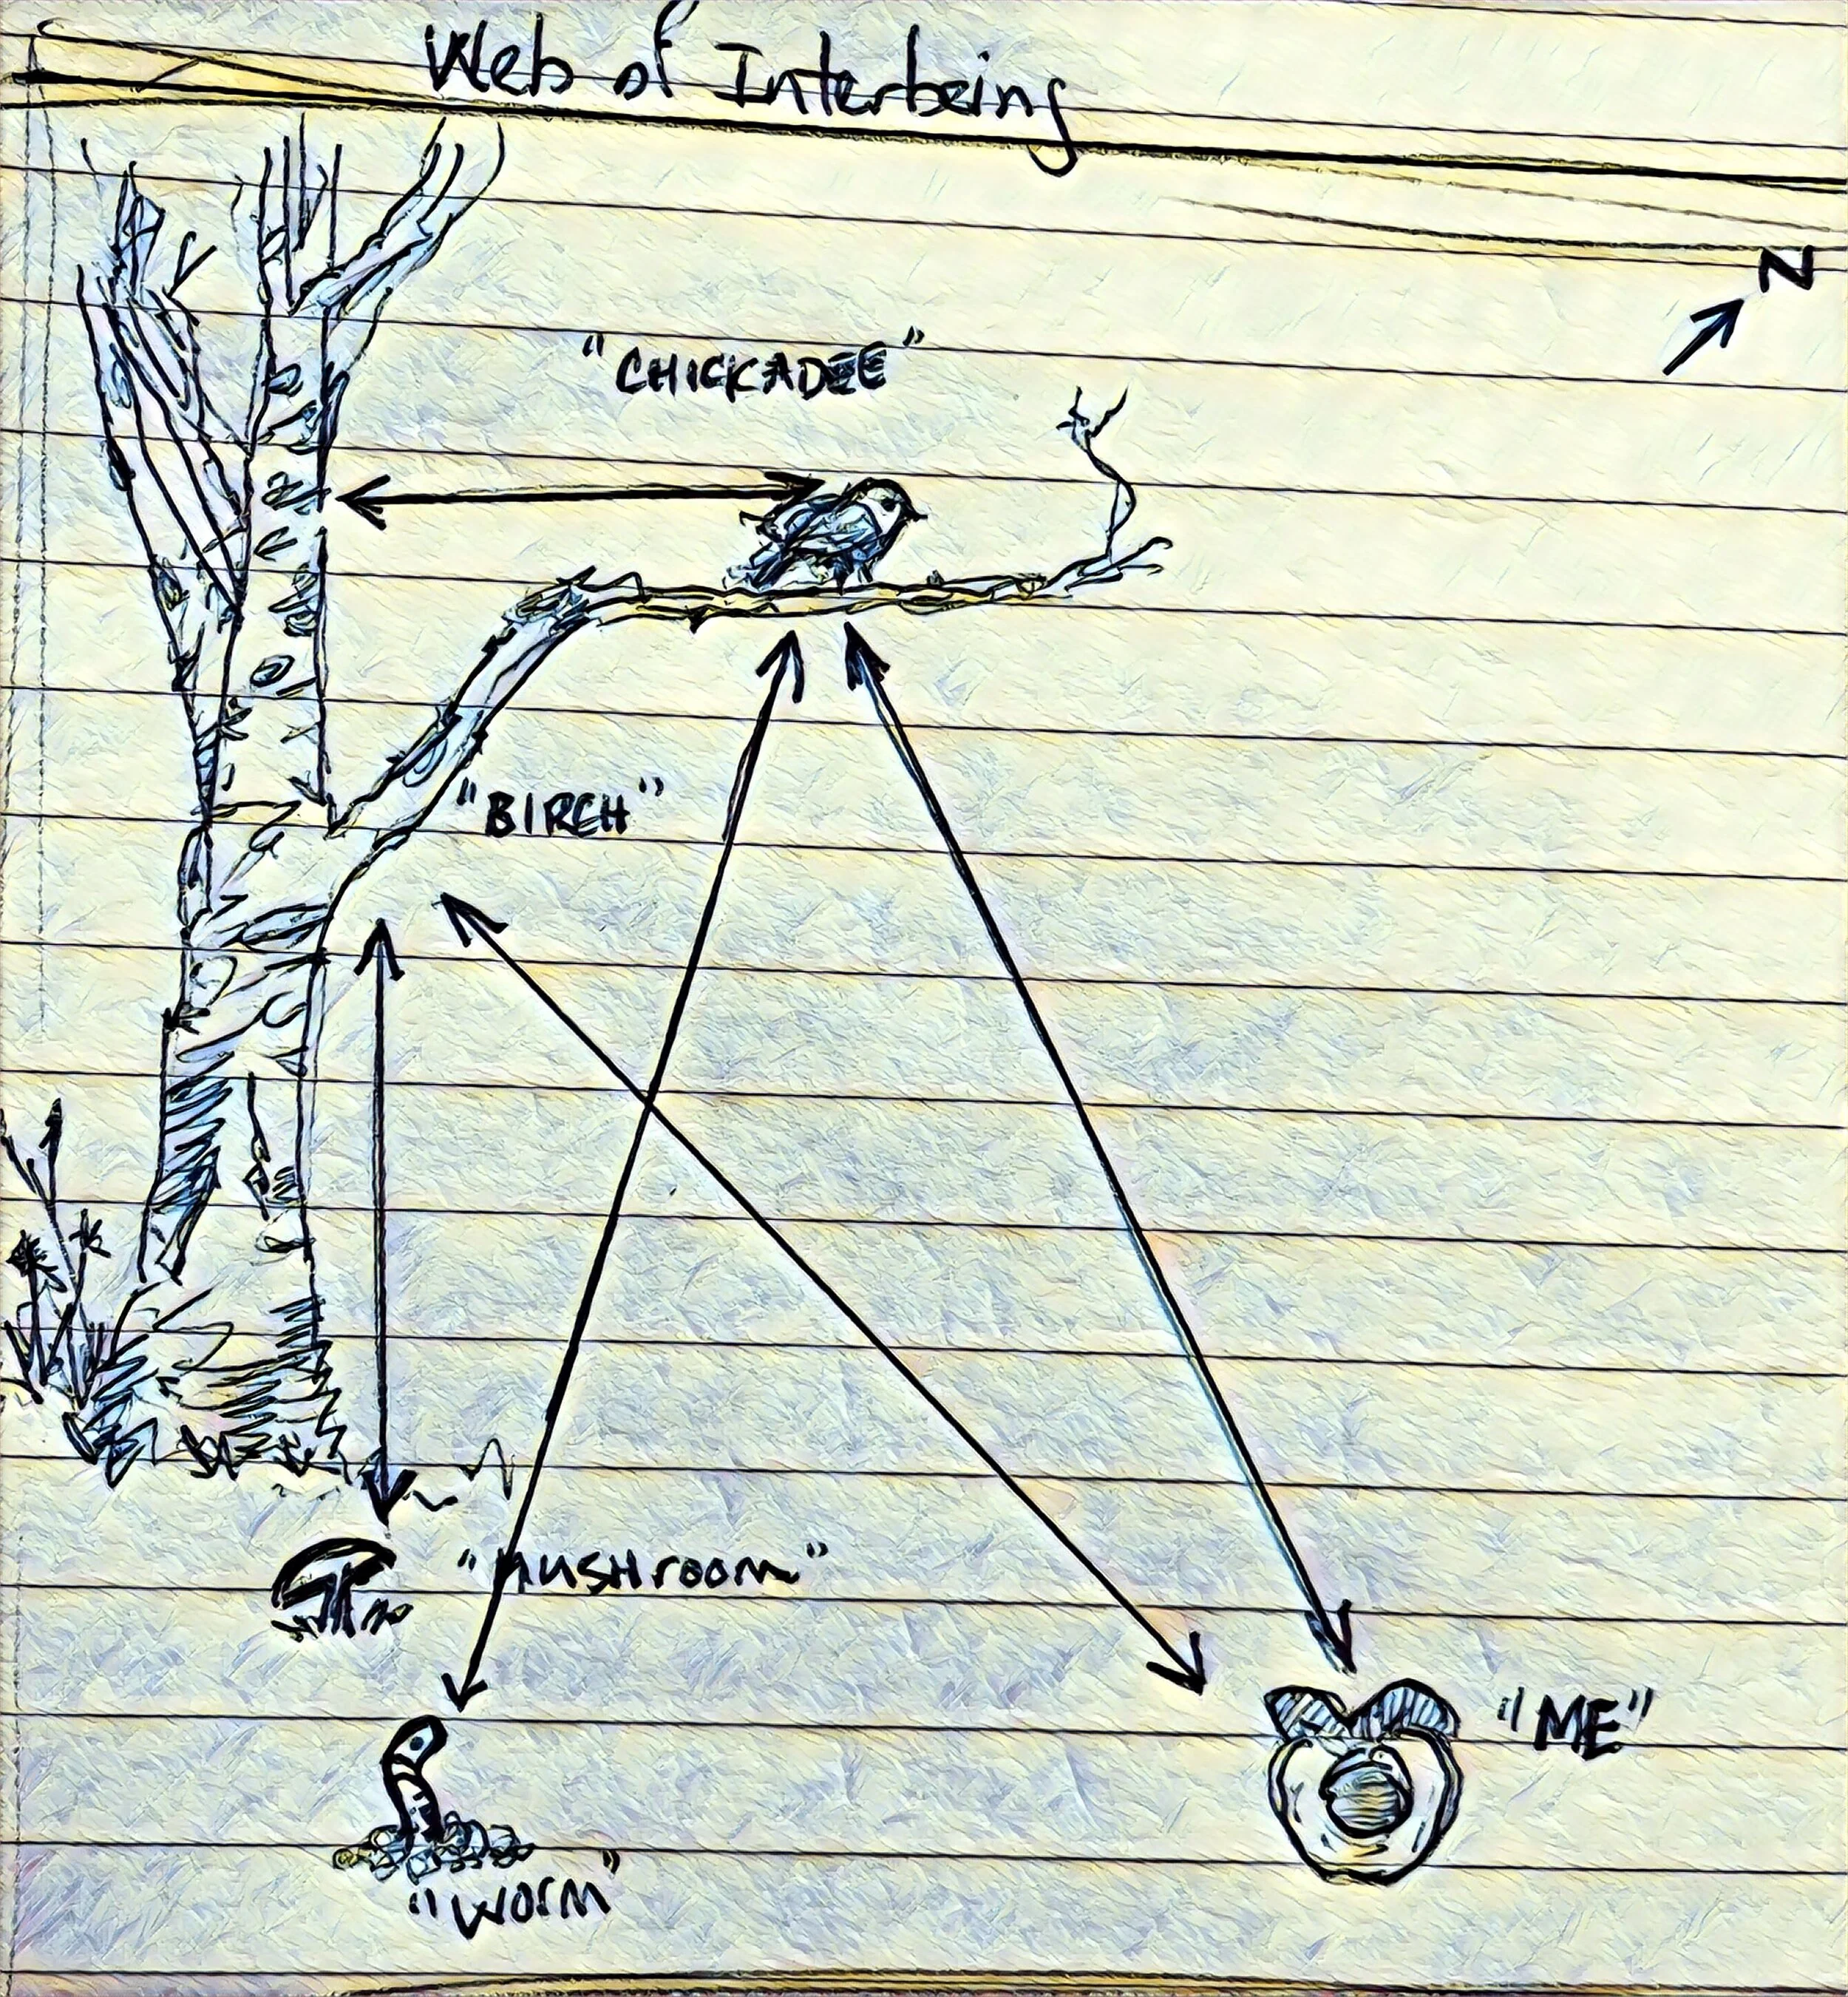 Web of Interbeing
N
"CHICKADEE"
"BIRCH"
"MUSHroom"
"ME"
"Worm"